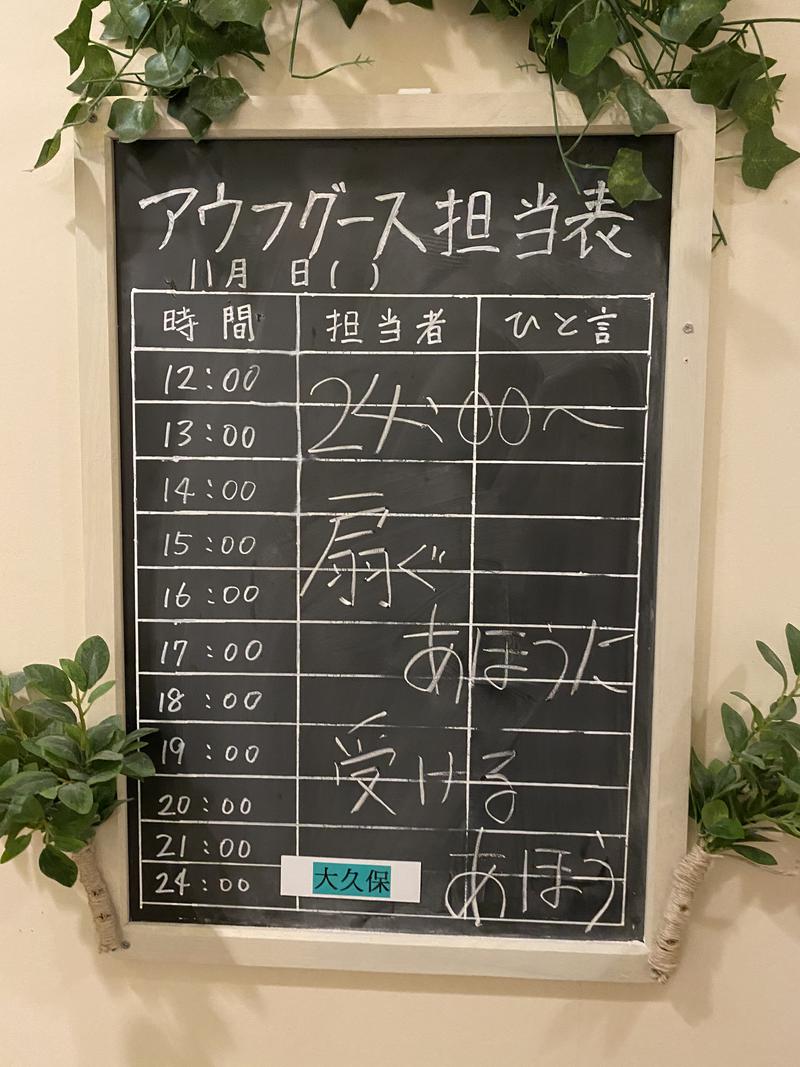 アウフグース担当表
11月 日( )
時間 担当者 ひと言
12:00
24:00〜
13:00
14:00
扇ぐ
15:00
16:00
17:00
あほうに
18:00
19:00
受ける
20:00
21:00
あほう
24:00 大久保